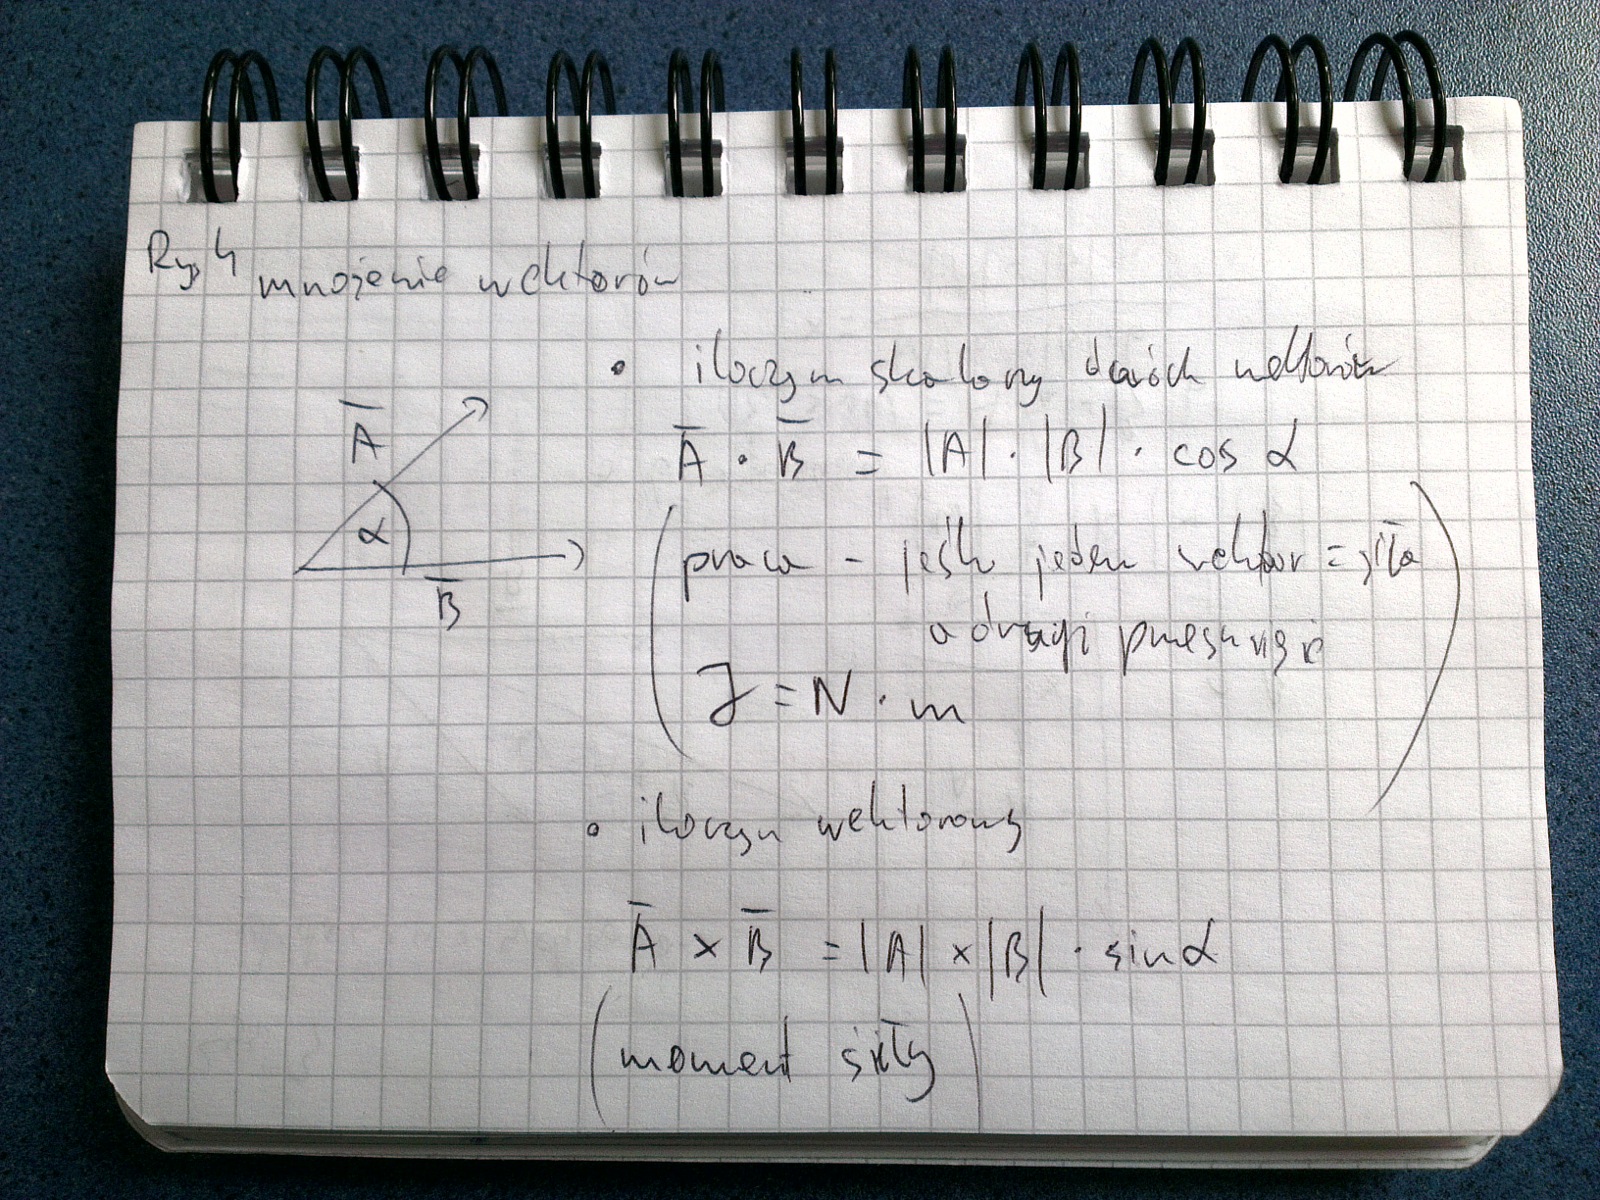 Rys 4
mnożenie wektorów
• iloczyn skalarny dwóch wektorów
A̅
α
B̅
A̅ · B̅ = |A| · |B| · cos α
(praca - jeśli jeden wektor = siła
a drugi przesunięcie
J = N · m)
• iloczyn wektorowy
A̅ × B̅ = |A| × |B| · sin α
(moment siły)